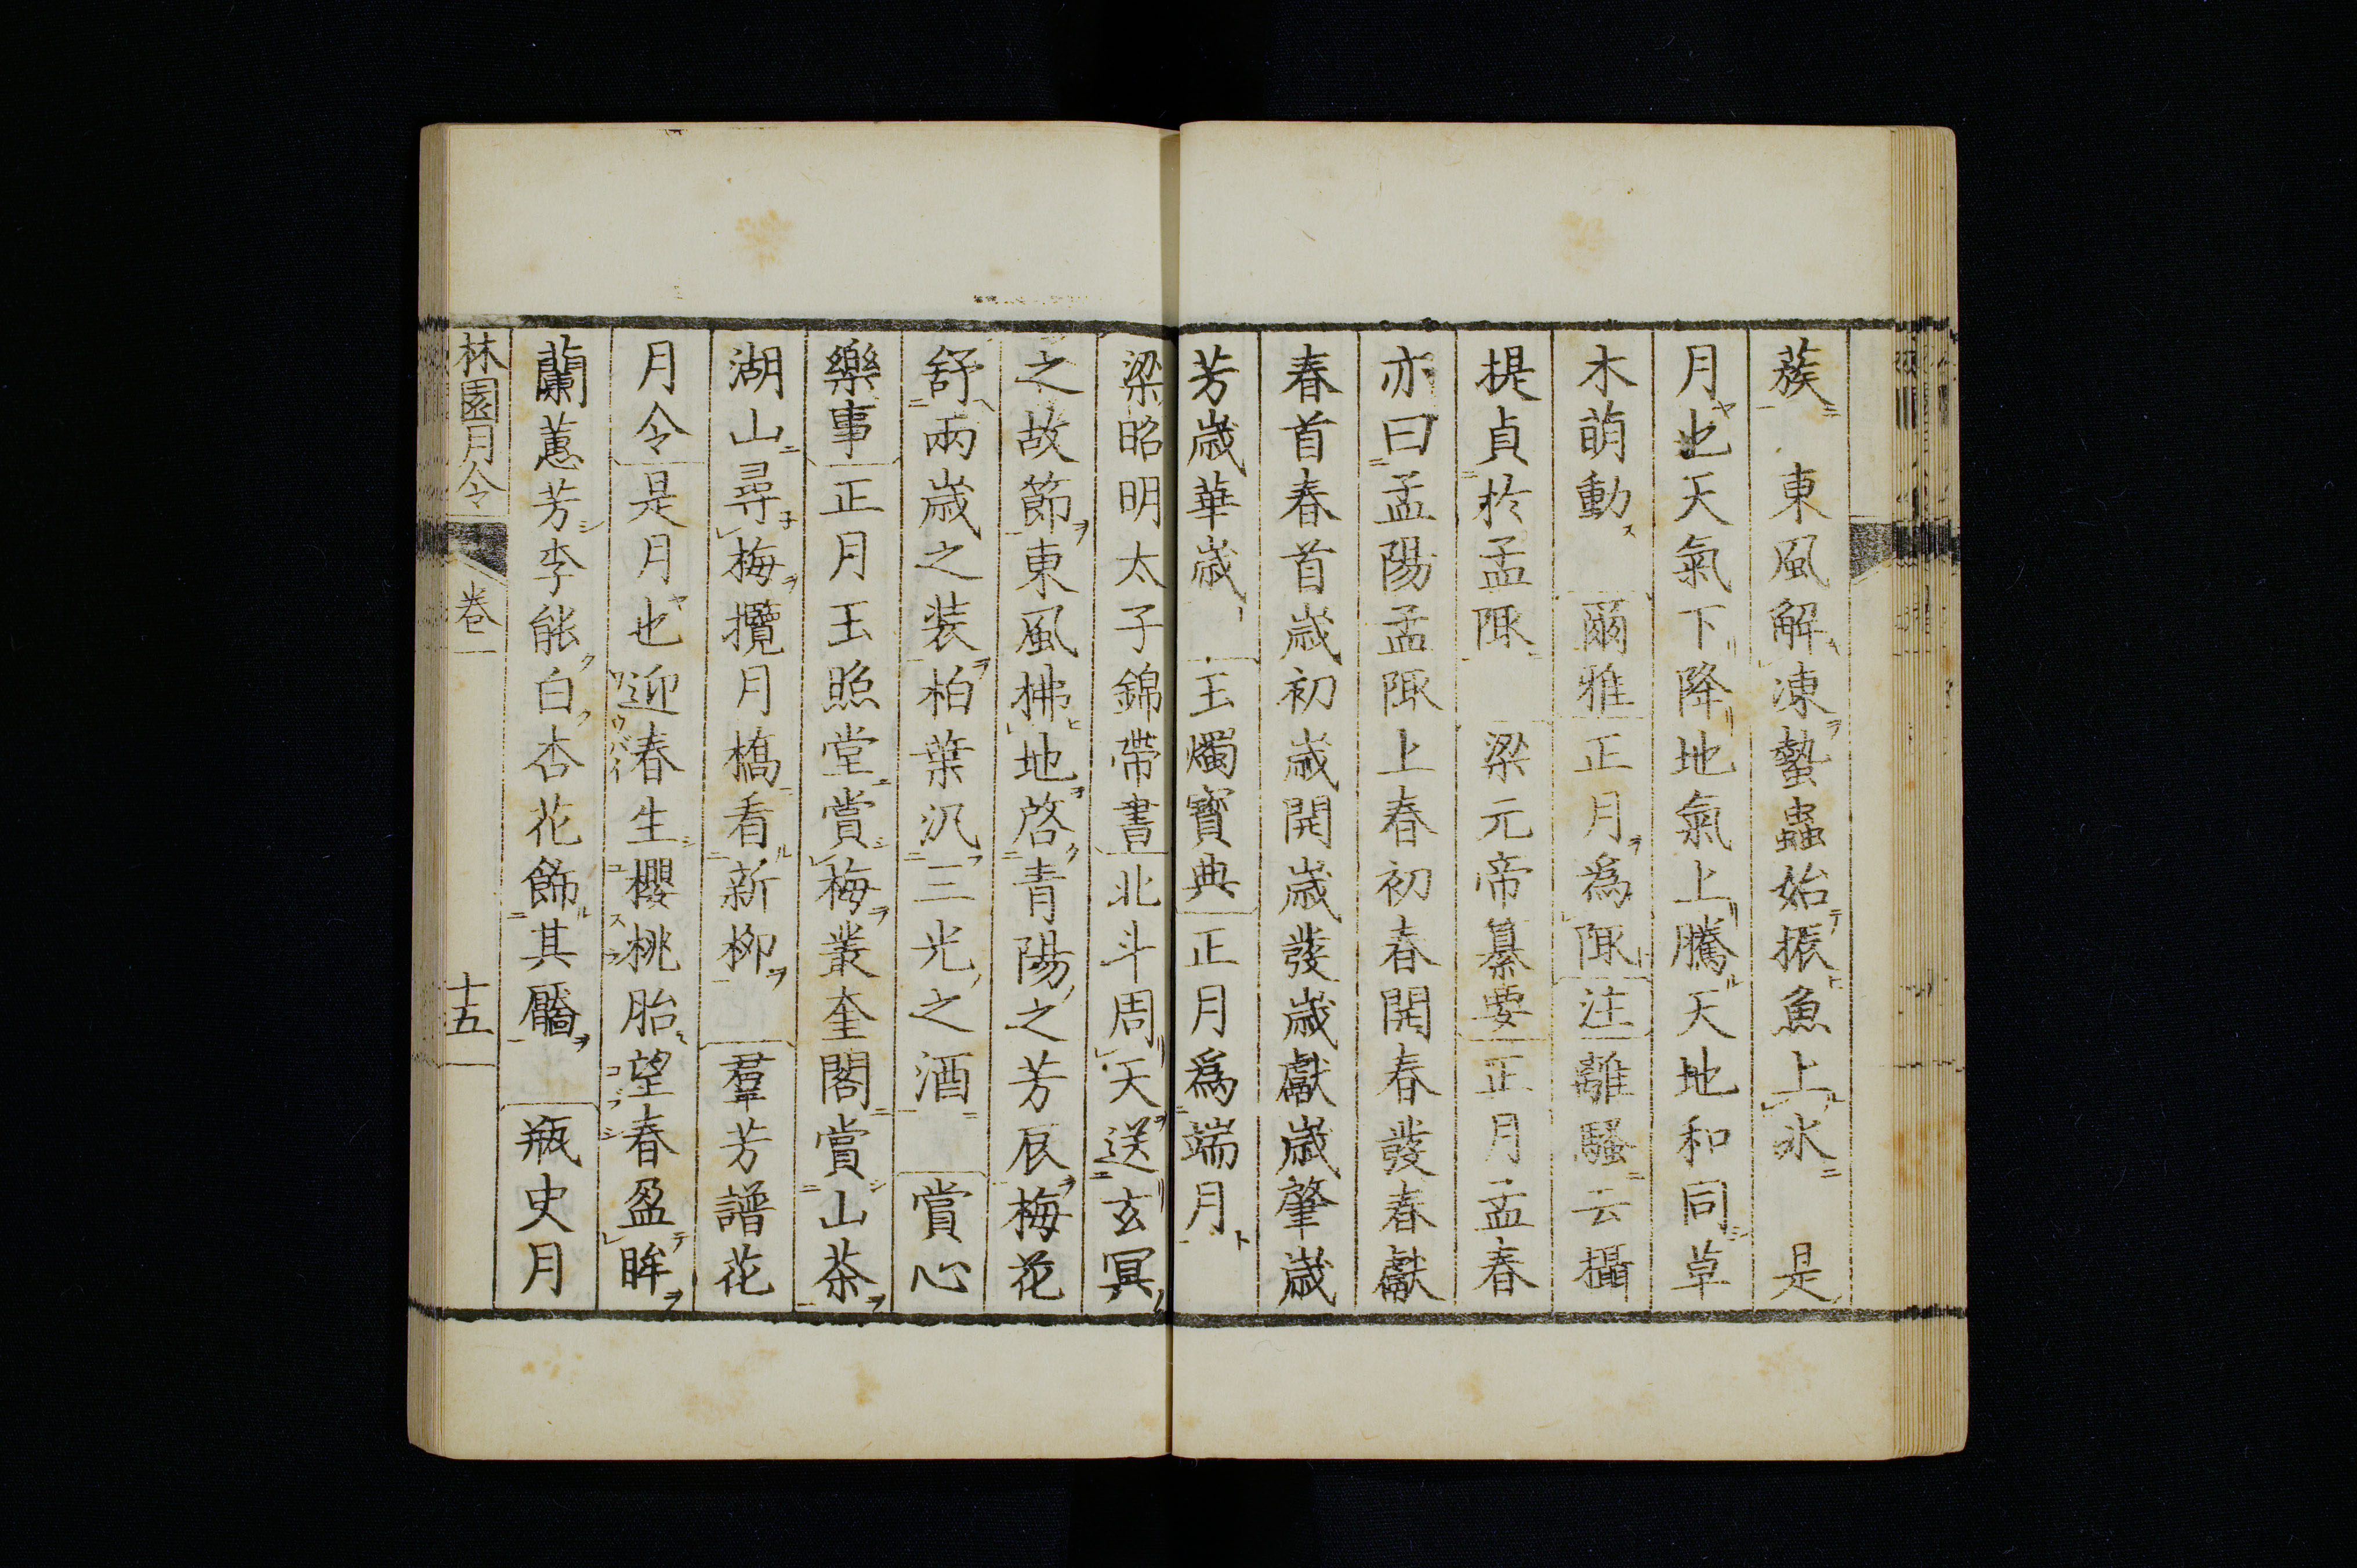 蔟　東風解凍蟄蟲始振魚上氷　是
月也天氣下降地氣上騰天地和同草
木萌動　爾雅正月爲陬注離騷云攝
提貞於孟陬　梁元帝纂要正月孟春
亦曰孟陽孟陬上春初春開春發春獻
春首春首歳初歳開歳發歳獻歳肇歳
芳歳華歳　玉燭寶典正月爲端月
梁昭明太子錦帶書北斗周天送玄冥
之故節東風拂地啓青陽之芳辰梅花
舒兩歳之装柏葉汎三光之酒　賞心
樂事正月玉照堂賞梅叢奎閣賞山茶
湖山尋梅攬月橋看新柳　羣芳譜花
月令是月也迎春生櫻桃胎望春盈眸
蘭蕙芳李能白杏花飾其靨　瓶史月
林園月令　卷一　十五